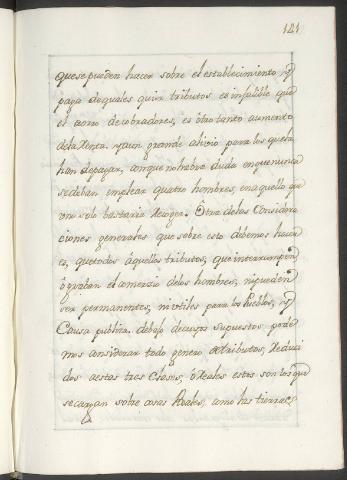 121
que se pueden hacer sobre el establecimiento, y
paga de quales quier tributos es infalible que
el aorro de cobradores, es otro tanto aumento
de la Renta, y aun grande alivio para los que la
han de pagar, con que no habra duda en que nunca
se deban emplear quatro hombres, en aquello que
uno solo bastaria Recoger. Otra de las Considera
ciones generales que sobre esto debemos hacer
es, que todos aquellos tributos, que interrumpen
ó graban el comersio de los hombres, ni pueden
ser permanentes, ni utiles para los Pueblos, y
Causa publica. debajo de cuyos supuestos pode
mos considerar todo genero de tributos, Reduci
dos a estas tres Clases, ó Reales estos son los que
se cargan sobre cosas Reales, como las tierras,